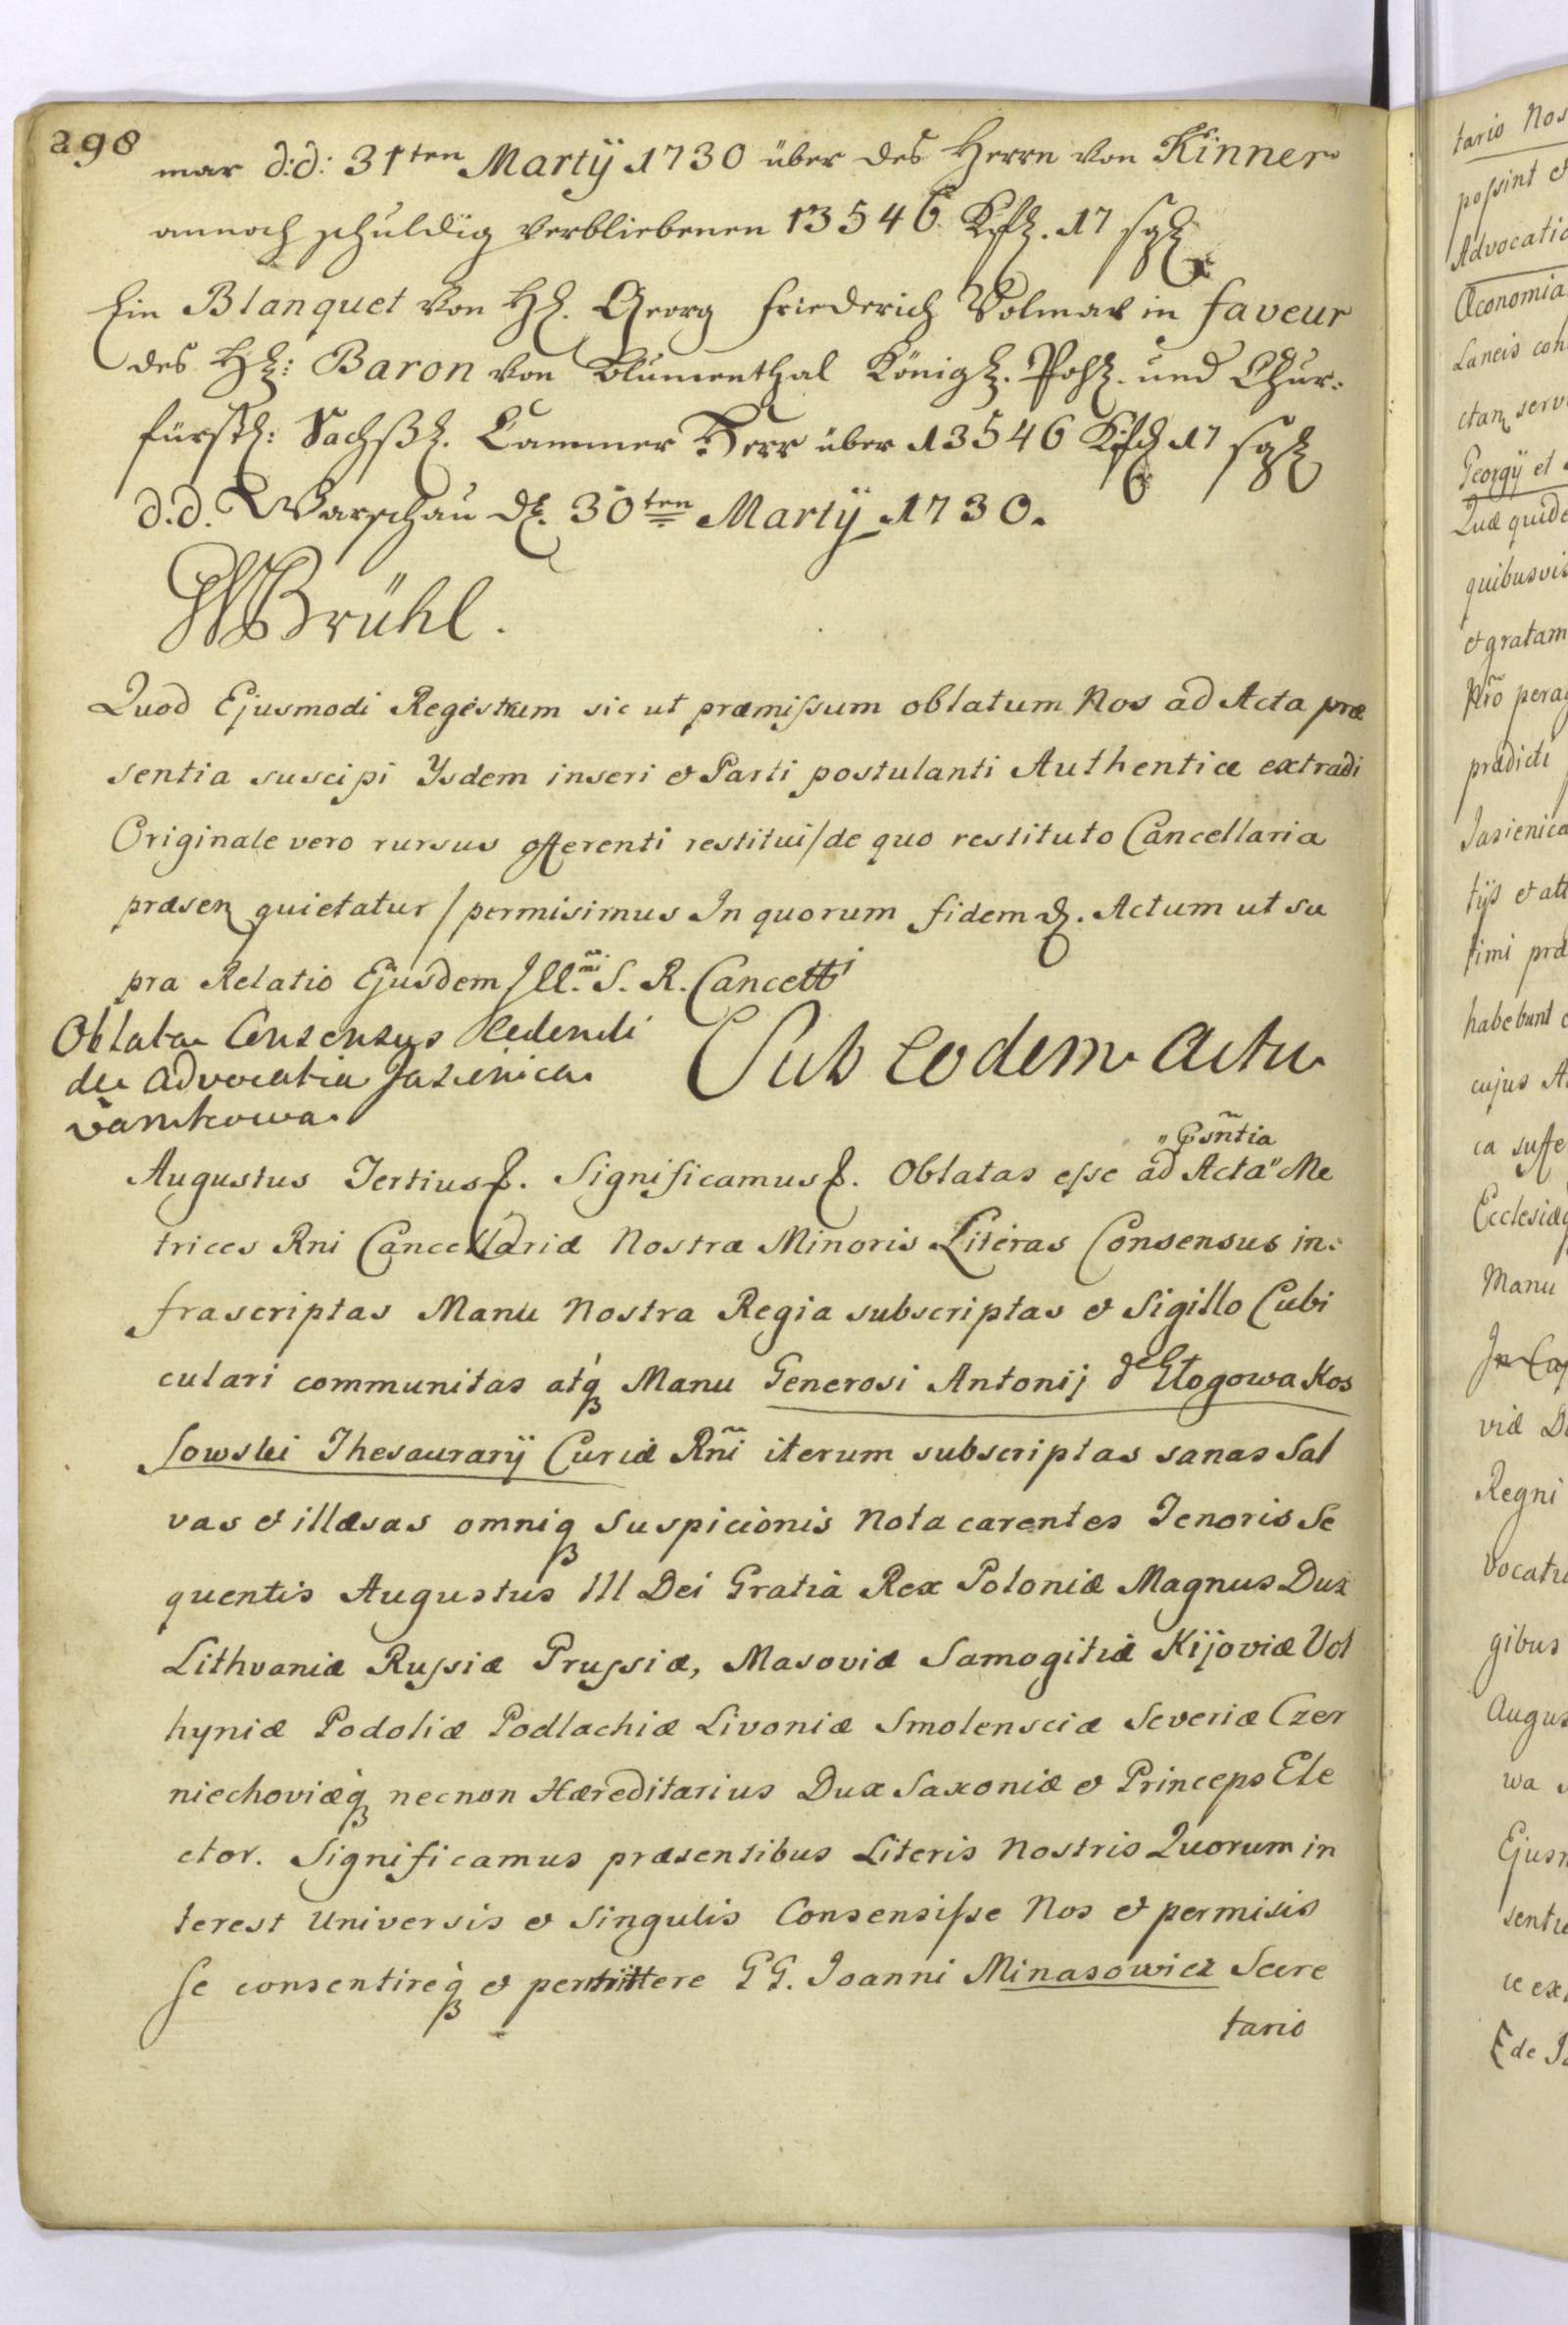 298
mar d:d: 31ten Martÿ 1730 über des Herrn von Kinner
annoch schuldig verbliebenen 13546. Rfl. 17 sgl
Ein Blanquet von HE. Georg Friederich Volmar in faveur
des HE: Baron von Blumenthal Königl. Pohl. und Chur-
fürstl: Sachßl. Cammer Herr über 13546 Rfl 17 sgl
d.d. Warschau d. 30ten Martÿ 1730.
Brühl.
Quod Ejusmodi Regestrum sic ut præmissum oblatum Nos ad Acta præ
sentia suscipi Ysdem inseri & Parti postulanti Authentice extradi
Originale vero rursus offerenti restitui/de quo restituto Cancellaria
præsen quietatur/permisimus In quorum fidem &. Actum ut su
pra Relatio Ejusdem Ill.mi S. R. Cancelli
Oblata Consensus Cedendi
de Advocatia Jasienica
Damkowa
Sub eodem Actu
Augustus Tertius &. Significamus &. Oblatas esse ad Acta "Psñtia" Me
trices Rni Cancellariæ Nostræ Minoris Literas Consensus in-
frascriptas Manu Nostra Regia subscriptas & Sigillo Cubi
culari communitas atq Manu Generosi Antonij de Głogowa Kos
sowski Thesaurarÿ Curiæ Rñi iterum subscriptas sanas Sal
vas & illæsas omniq Suspicionis Nota carentes Tenoris Se
quentis Augustus III Dei Gratià Rex Poloniæ Magnus Dux
Lithvaniæ Russiæ Prussiæ, Masoviæ Samogitiæ Kijoviæ Vol
hyniæ Podoliæ Podlachiæ Livoniæ Smolensciæ Severiæ Czer
niechoviæq necnon Hæreditarius Dux Saxoniæ & Princeps Ele
ctor. Significamus præsentibus Literis Nostris Quorum in
terest Universis & Singulis Consensisse Nos & permisis
se consentireq & permittere GG. Joanni Minasowicz Secre
tario
tario Nos
possint &
Advocatia
Œconomia
Laneis coh
ctam serv
Georgÿ et
Quæ quide
quibusvis
& gratam
Nrõ perag
prædicti
Jasienica
tijs & att
simi præ
habebunt
cujus A
ca suffe
Ecclesiæq
Manu
viæ D
Regni
vocatu
gibus
Augus
wa
Ejusm
sentia
ce ex
de J